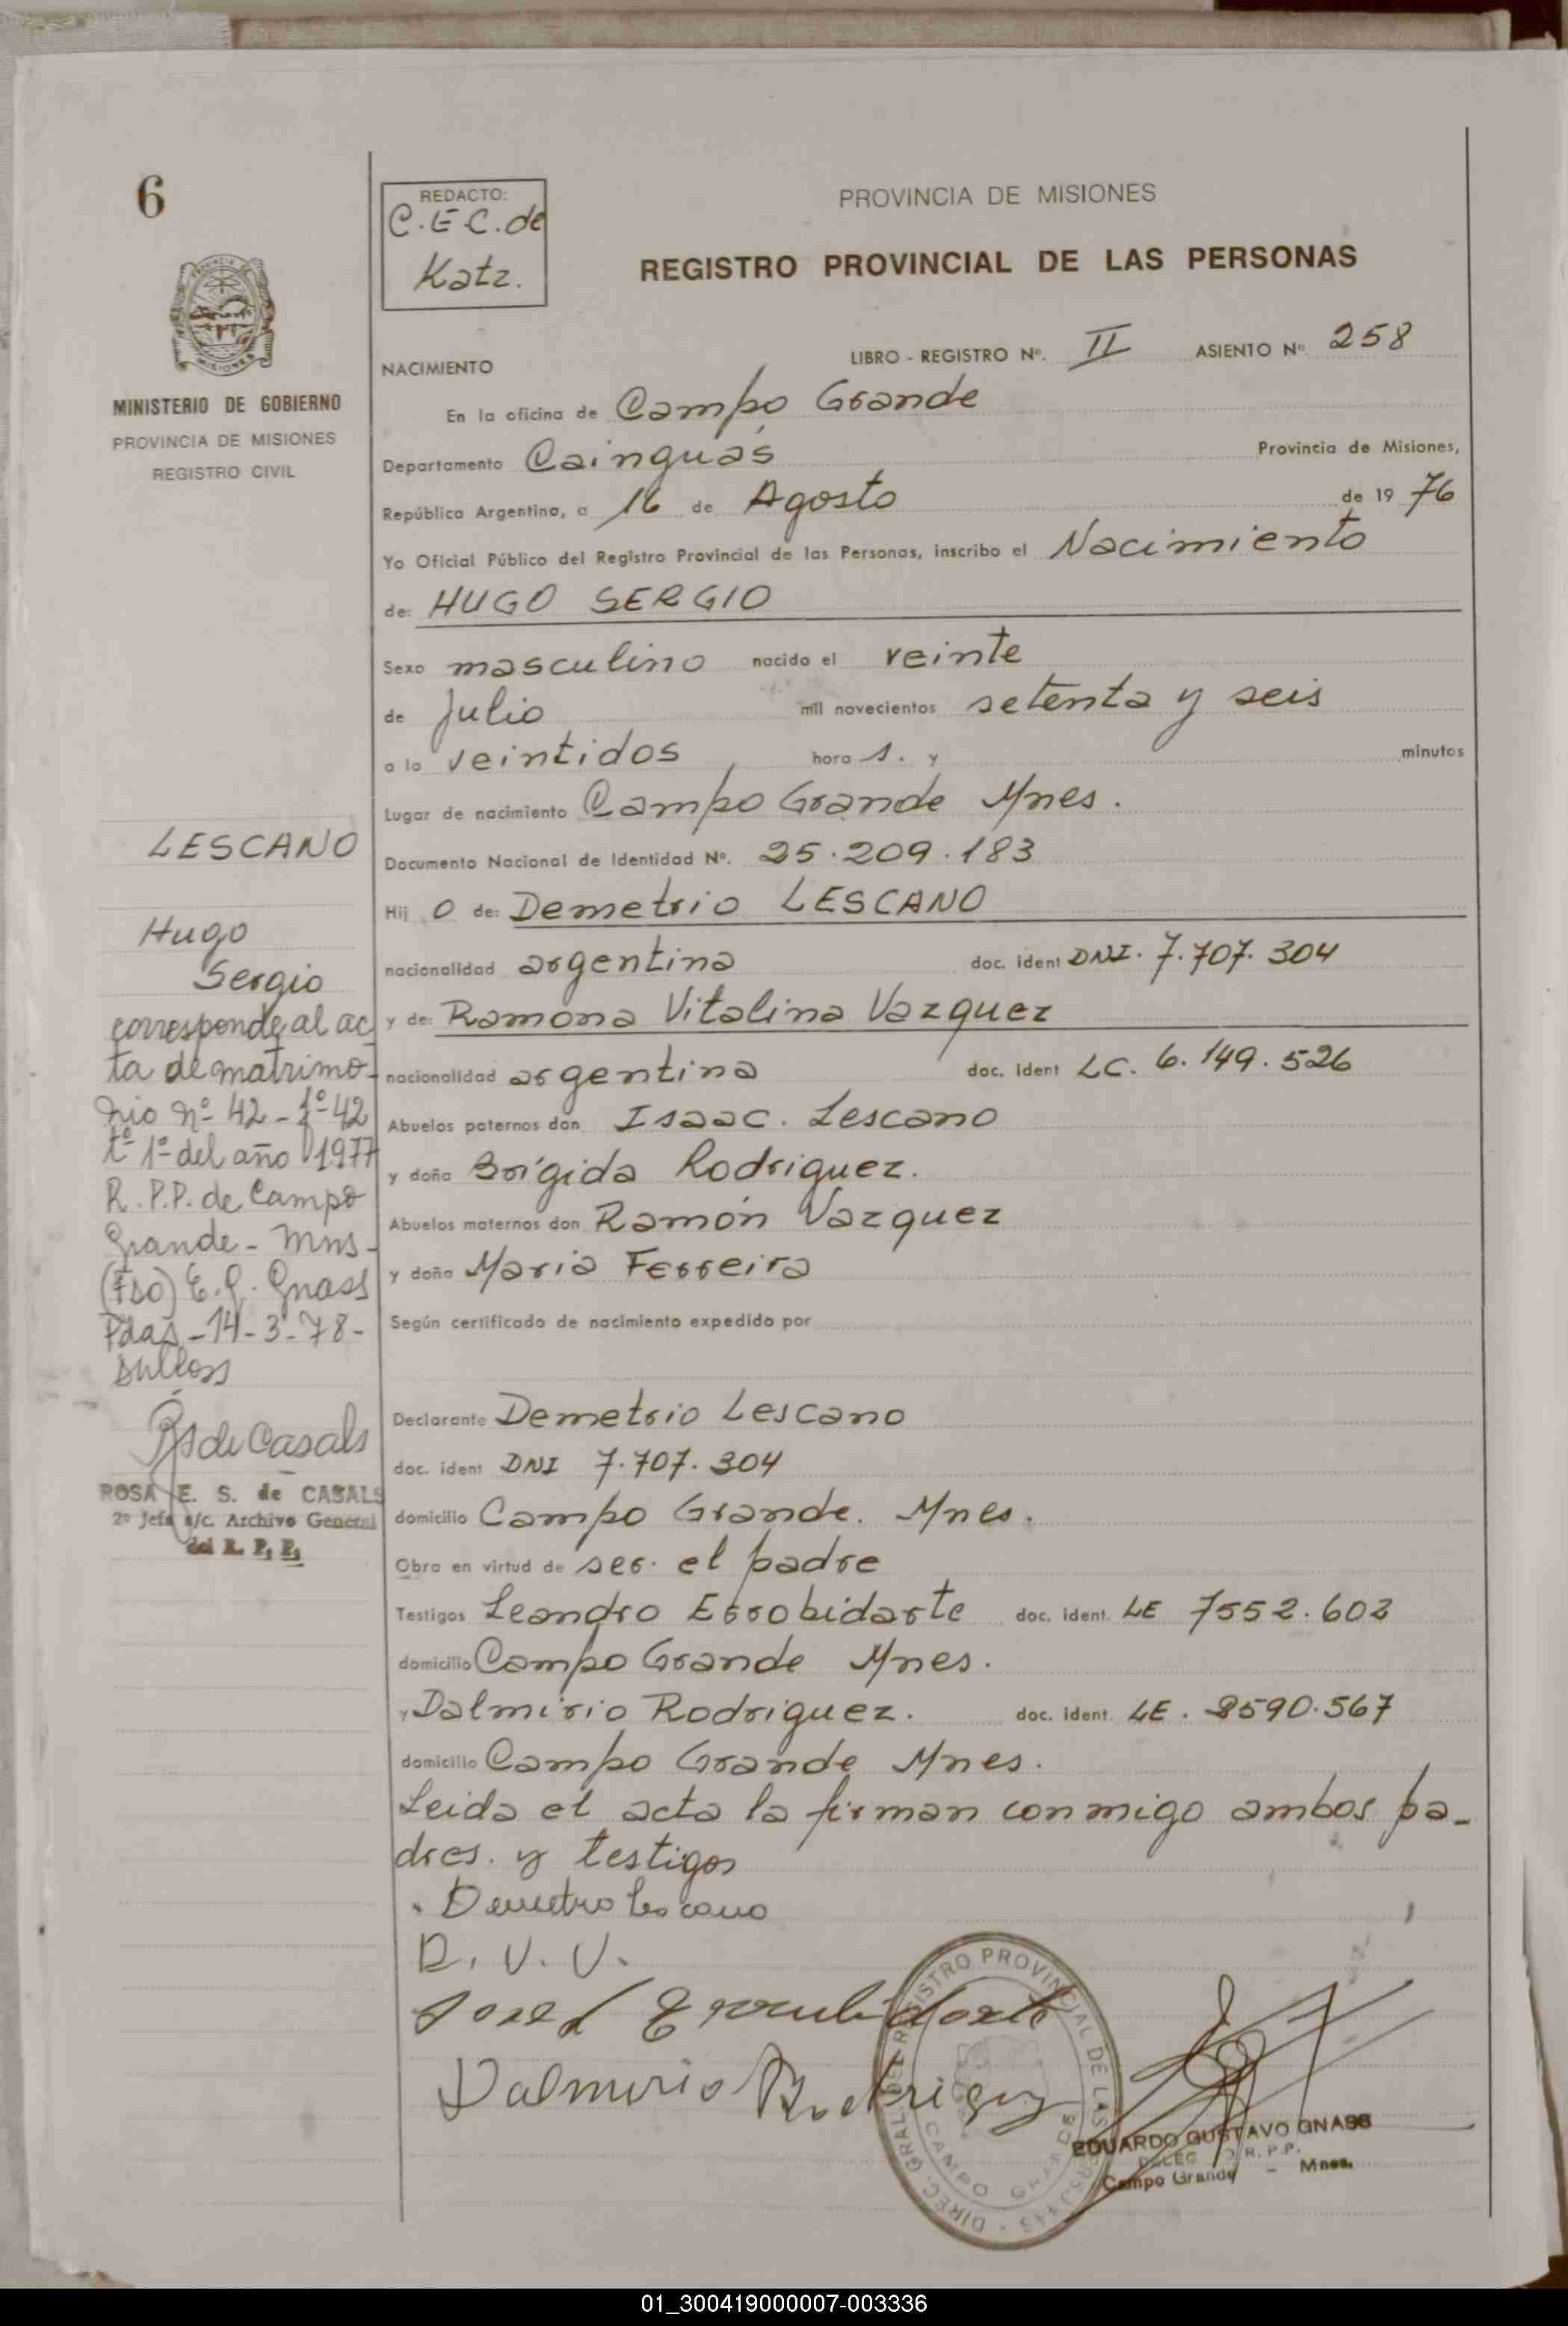 6
REDACTO:
C.E.C. de
Katz.
PROVINCIA DE MISIONES
REGISTRO PROVINCIAL DE LAS PERSONAS
MINISTERIO DE GOBIERNO
PROVINCIA DE MISIONES
REGISTRO CIVIL
NACIMIENTO LIBRO - REGISTRO Nº. II ASIENTO Nº 258
En la oficina de Campo Grande
Departamento Cainguás Provincia de Misiones,
República Argentina, a 16 de Agosto de 19 76
Yo Oficial Público del Registro Provincial de las Personas, inscribo el Nacimiento
de: HUGO SERGIO
Sexo masculino nacido el veinte
de Julio mil novecientos setenta y seis
a la veintidos hora s. y minutos
Lugar de nacimiento Campo Grande Mnes.
Documento Nacional de Identidad Nº. 25.209.183
Hij o de: Demetrio LESCANO
nacionalidad argentina doc. ident DNI. 7.707.304
y de: Ramona Vitalina Vazquez
nacionalidad argentina doc. ident LC. 6.149.526
Abuelos paternos don Isaac. Lescano
y doña Brígida Rodriguez.
Abuelos maternos don Ramón Vazquez
y doña Maria Ferreira
Según certificado de nacimiento expedido por
Declarante Demetrio Lescano
doc. ident DNI 7.707.304
domicilio Campo Grande. Mnes.
Obra en virtud de ser. el padre
Testigos Leandro Errobidarte doc. ident. LE 7552.602
domicilio Campo Grande Mnes.
y Dalmirio Rodriguez. doc. ident. LE. 8590.567
domicilio Campo Grande Mnes.
Leida el acta la firman conmigo ambos pa-
dres. y testigos
Demetrio Lescano
R. V. V.
Dalmirio Rodriguez
LESCANO
Hugo
Sergio
corresponde al ac
ta de matrimo-
nio nº 42 - fº 42
tº 1º del año 1977
R.P.P. de Campo
Grande - Mns -
(Fdo) E. G. Gnass
Pdas - 14 - 3 - 78 -
RS de Casals
ROSA E. S. de CASALS
2º Jefa a/c. Archivo General
del R. P. P.
DIREC. GRAL. DEL REGISTRO PROVINCIAL DE LAS PERSONAS
CAMPO GRANDE
EDUARDO GUSTAVO GNASS
R.P.P.
Campo Grande - Mnes.
01_300419000007-003336